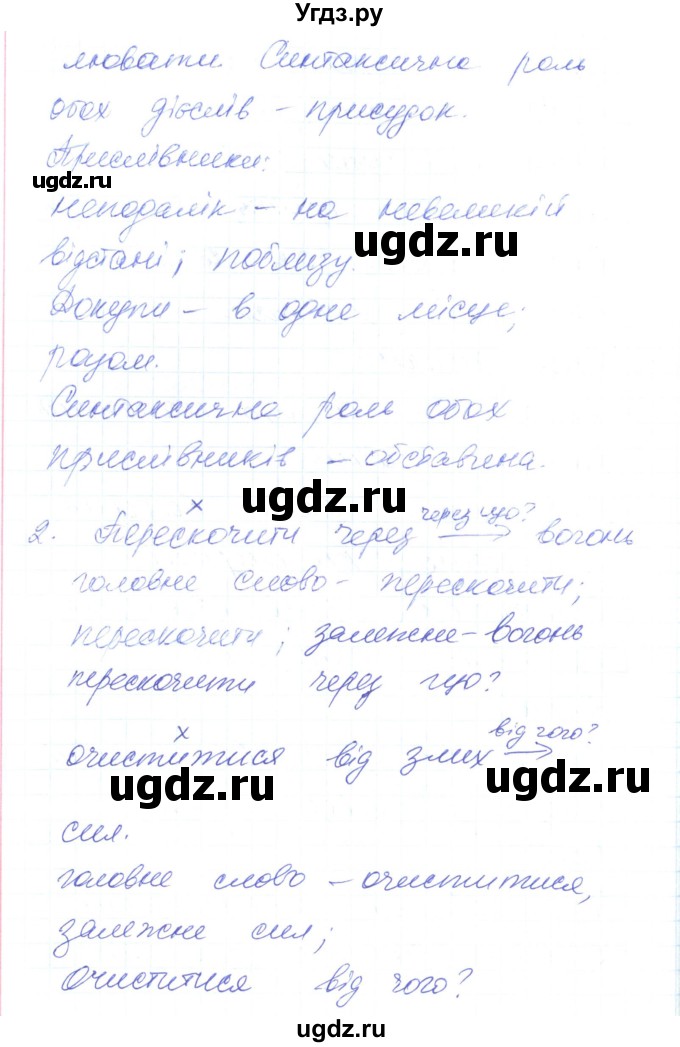 Угдз.ру
лювати Синтаксична роль
обох дієслів – присудок.
Прислівники:
ugdz.ru
неподалік – на невеликій
ugdz.ru
відстані; поблизу.
Докупи – в одне місце;
разом.
Синтаксична роль обох
прислівників – обставина.
ugdz.ru
х через що?
2. Перескочити через → вогонь
головне слово - перескочити;
ugdz.ru
перескочити; залежне – вогонь
перескочити через що?
х від чого?
очиститися від злих →
ugdz.ru
сил.
головне слово – очиститися,
ugdz.ru
залежне сил;
очиститися від чого?
ugdz.ru